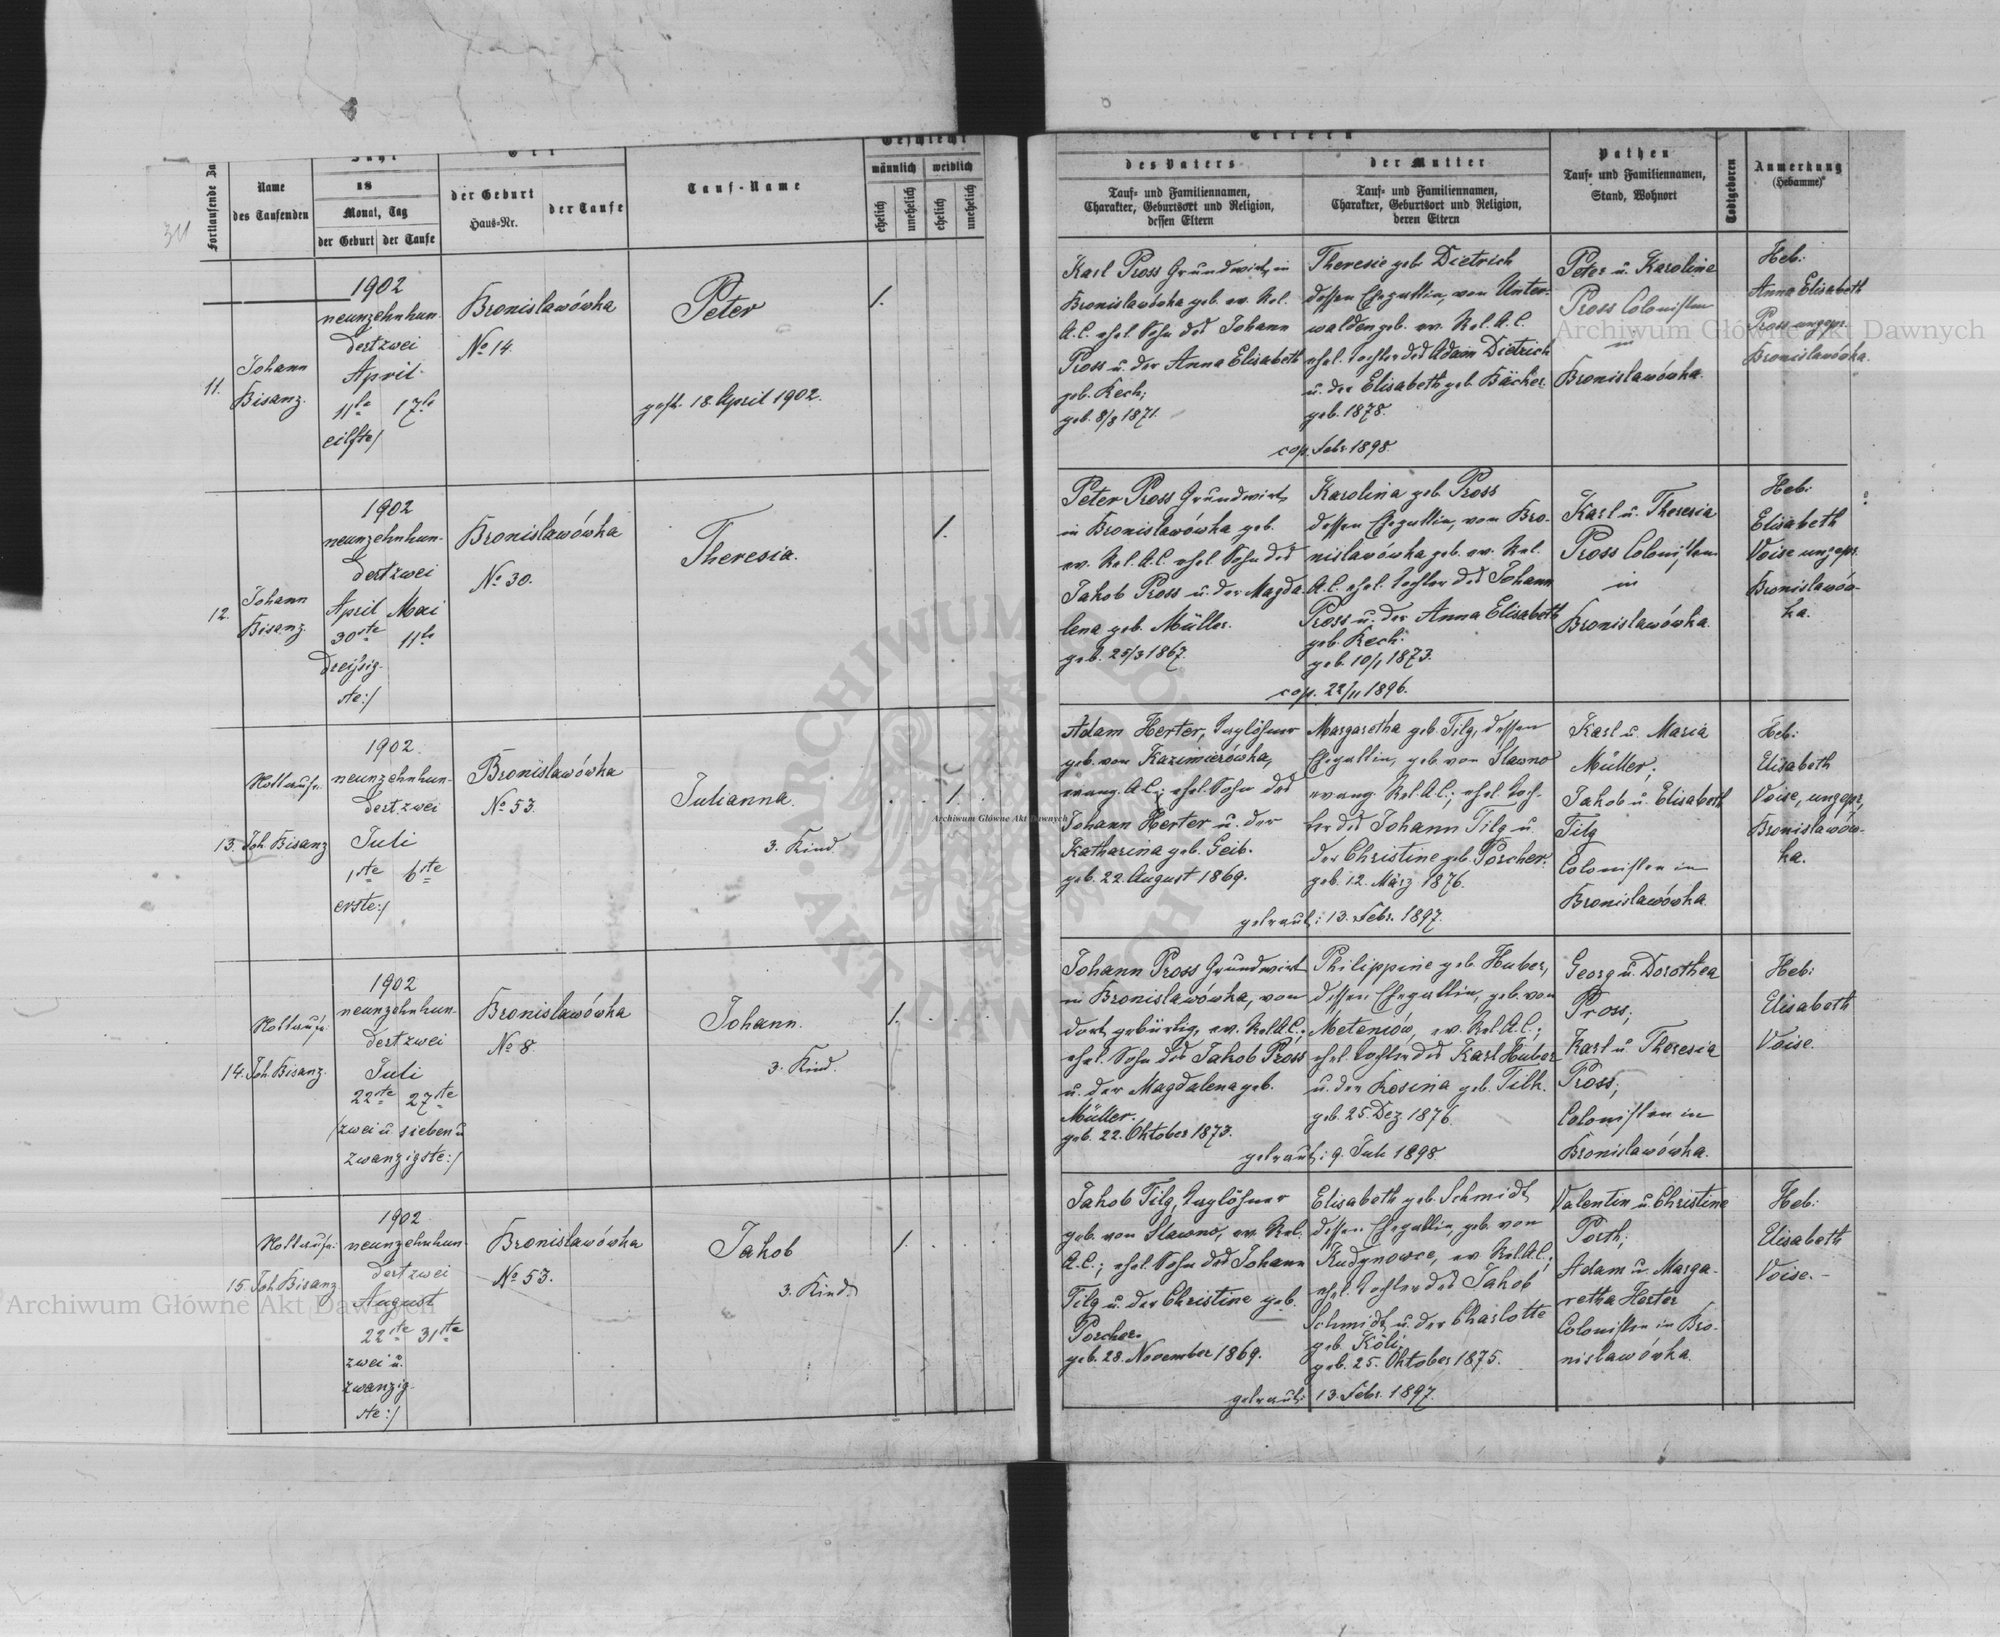 311
Fortlaufende Za
Name
des Taufenden
Jahr
18
Monat, Tag
der Geburt
der Taufe
Ort
der Geburt
Haus-Nr.
der Taufe
Tauf-Name
Geschlecht
männlich
weiblich
ehelich
unehelich
ehelich
unehelich
Eltern
des Vaters
Tauf- und Familiennamen,
Charakter, Geburtsort und Religion,
dessen Eltern
der Mutter
Tauf- und Familiennamen,
Charakter, Geburtsort und Religion,
deren Eltern
Pathen
Tauf- und Familiennamen,
Stand, Wohnort
Todtgeboren
Anmerkung
(Hebamme)
11.
Johann
Bisanz.
1902
neunzehnhun-
dertzwei
April
11te 17te
eilfte/
Bronislawówka
No 14.
Peter
gest. 18. April 1902.
1.
Karl Pross Grundwirt, in
Bronislawówka geb. ev. Rel.
A.C. ehel. Sohn des Johann
Pross u. der Anna Elisabeth
geb. Kech;
geb. 8/8 1871.
Theresie geb. Dietrich
dessen Ehegattin, von Unter-
walden geb. ev. Rel. A.C.
ehel. Tochter des Adam Dietrich
u. der Elisabeth geb. Bäcker.
geb. 1878.
cop. Febr. 1898.
Peter u. Karoline
Pross Colonisten
in
Bronislawówka.
Heb:
Anna Elisabeth
Pross ungepr.
Bronislawówka.
12.
Johann
Bisanz.
1902
neunzehnhun-
dertzwei
April Mai
30ste 11te
dreißig-
ste:/
Bronislawówka
No 30.
Theresia.
1.
Peter Pross Grundwirt,
in Bronislawówka geb.
ev. Rel. A.C. ehel. Sohn des
Jakob Pross u. der Magda-
lena geb. Müller.
geb. 25/3 1867.
Karolina geb. Pross
dessen Ehegattin, von Bro-
nislawówka geb. ev. Rel.
A.C. ehel. Tochter des Johann
Pross u. der Anna Elisabeth
geb. Kech.
geb. 10/1 1873.
cop. 22/11 1896.
Karl u. Theresia
Pross Colonisten
in
Bronislawówka.
Heb:
Elisabeth
Voise ungepr.
Bronislawów-
ka.
13.
Nottaufe:
Joh Bisanz
1902.
neunzehnhun-
dertzwei
Juli
1ste 6ste
erste:/
Bronislawówka
No 53.
Julianna.
3. Kind.
1.
Adam Herter, Taglöhner
geb. von Kazimierówka,
evang. A.C.; ehel. Sohn des
Johann Herter u. der
Katharina geb. Geib.
geb. 22. August 1869.
Margaretha geb. Tilg, dessen
Ehegattin, geb. von Slawno
evang. Rel. A.C.; ehel. Toch-
ter des Johann Tilg u.
der Christine geb. Porcher.
geb. 12. März 1876.
getraut: 13. Febr. 1897.
Karl u. Maria
Müller;
Jakob u. Elisabeth
Tilg
Colonisten in
Bronislawówka.
Heb:
Elisabeth
Voise, ungepr,
Bronislawów-
ka.
14.
Nottaufe:
Joh. Bisanz.
1902
neunzehnhun-
dertzwei
Juli
22ste 27ste
/zwei u sieben u
zwanzigste:/
Bronislawówka
No 8.
Johann.
3. Kind.
1.
Johann Pross Grundwirt
in Bronislawówka, von
dort gebürtig, ev. Rel. A.C.;
ehel. Sohn des Jakob Pross
u. der Magdalena geb.
Müller.
geb. 22. Oktober 1873.
Philippine geb. Huber,
dessen Ehegattin, geb. von
Meteniów, ev. Rel. A.C.;
ehel. Tochter des Karl Huber
u. der Rosina geb. Tilk.
geb. 25. Dez. 1876.
getraut: 9. Juli 1898.
Georg u. Dorothea
Pross;
Karl u. Theresia
Pross;
Colonisten in
Bronislawówka.
Heb:
Elisabeth
Voise.
15.
Nottaufe:
Joh. Bisanz
1902
neunzehnhun-
dertzwei
August
22ste 31ste
zwei u.
zwanzig-
ste:/
Bronislawówka
No 53.
Jakob
3. Kind.
1.
Jakob Tilg, Taglöhner
geb. von Slawno, ev. Rel.
A.C.; ehel. Sohn des Johann
Tilg u. der Christine geb.
Porcher.
geb. 28. November 1869.
Elisabeth geb. Schmidt,
dessen Ehegattin, geb. von
Kudynowce, ev. Rel. A.C.;
ehel. Tochter des Jakob
Schmidt u. der Charlotte
geb. Köli,
geb. 25. Oktober 1875.
getraut: 13. Febr. 1897.
Valentin u. Christine
Porth;
Adam u. Marga-
retha Herter
Colonisten in Bro-
nislawówka.
Heb:
Elisabeth
Voise.-
Archiwum Główne Akt Dawnych
Archiwum Główne Akt Dawnych
Archiwum Główne Akt Dawnych